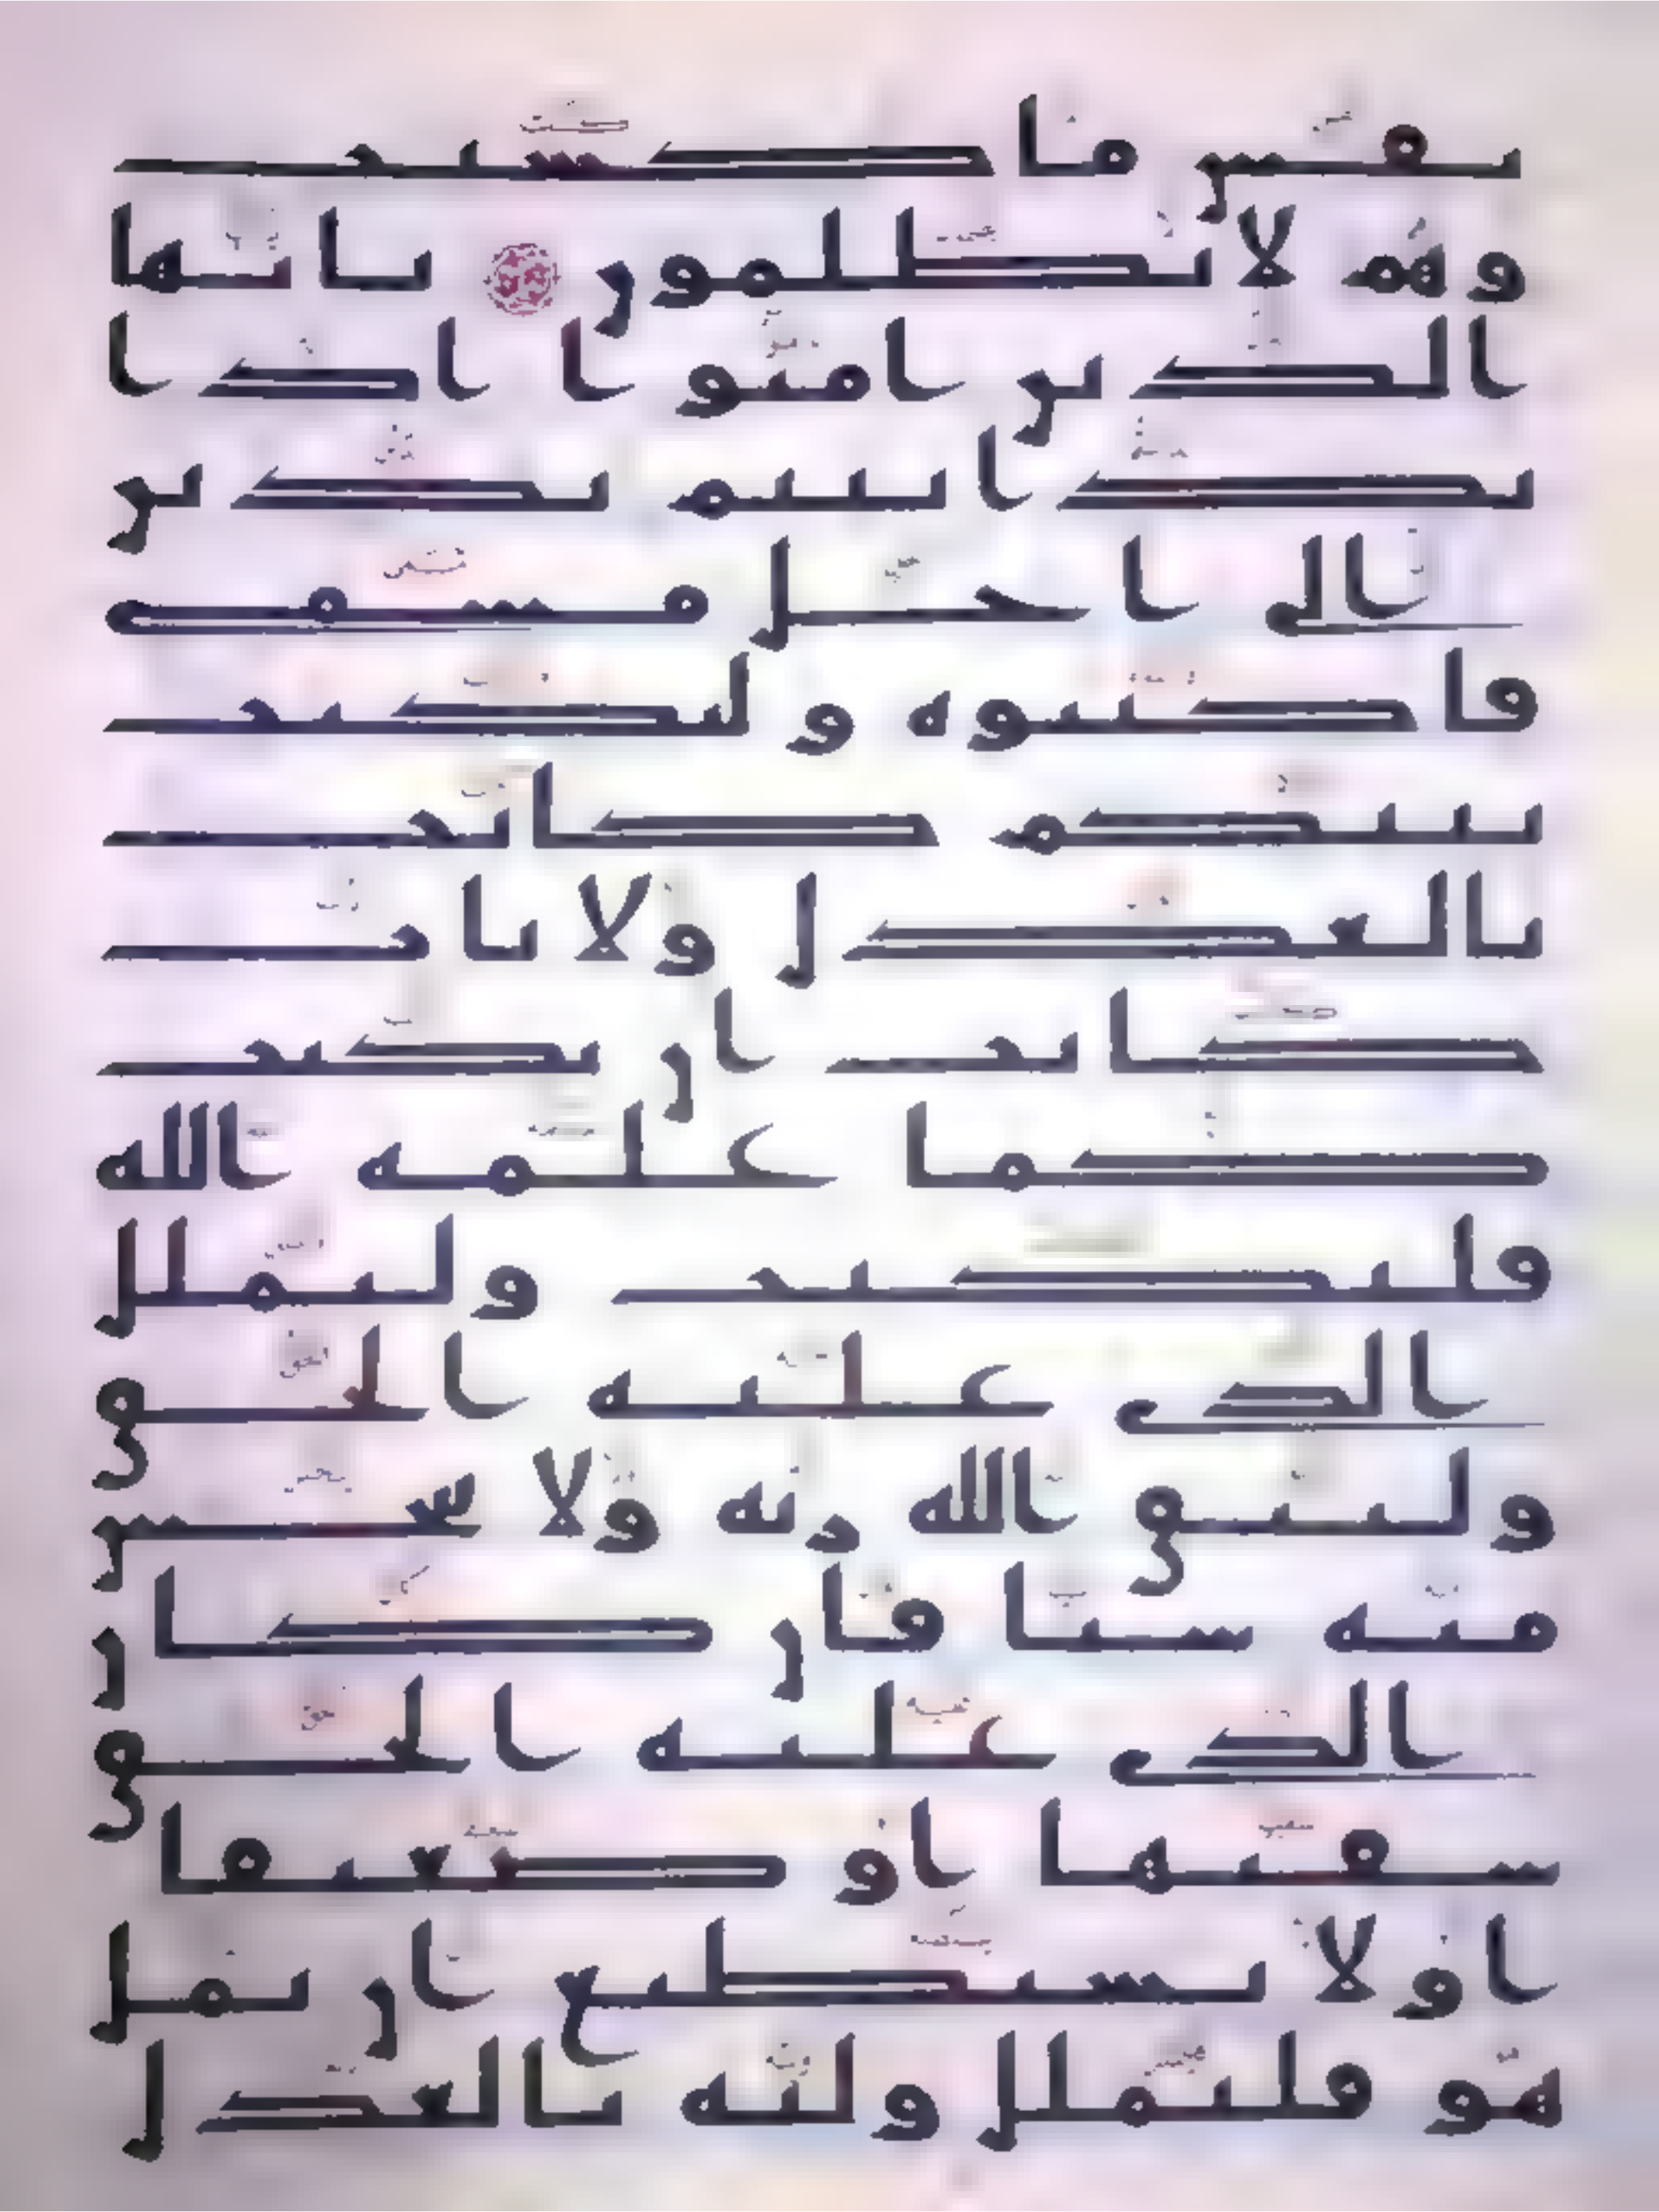 نفس ما كسبت
وهم لا يظلمون يايها
الذين امنوا اذا
تداينتم بدين
الى اجل مسمى
فاكتبوه وليكتب
بينكم كاتب
بالعدل ولا ياب
كاتب ان يكتب
كما علمه الله
فليكتب وليملل
الذي عليه الحق
وليتق الله ربه ولا يبخس
منه شيا فان كان
الذي عليه الحق
سفيها او ضعيفا
او لا يستطيع ان يمل
هو فليملل وليه بالعدل